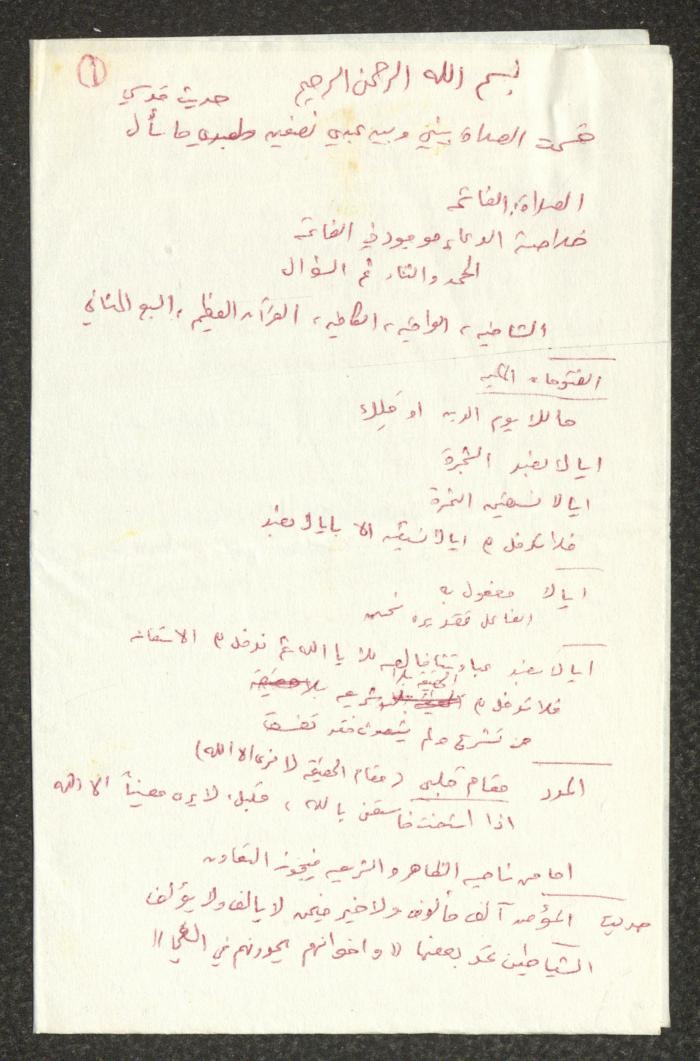 ١
بسم الله الرحمن الرحيم
حديث قدسي
قسمت الصلاة بيني وبين عبدي نصفين ولعبدي ما سأل
الصلاة: الفاتحة
خلاصة الدعاء موجود في الفاتحة
الحمد والثناء ثم السؤال
الشافية، الواقية، الكافية، القرآن العظيم، السبع المثاني
الفتوحات المكية
مالك يوم الدين أو مَلِك
اياك نعبد الشجرة
اياك نستعين الثمرة
فلا ندخل اياك نستعين الا باياك نعبد
اياك مفعول به
الفاعل تقديره نحن
اياك نعبد عبادتنا خالصه لك يا الله ثم ندخل الاستعانه
فلا ندخل الحقيقة بلا شريعه
من تشرع ولم يتصوف فقد تفسق
المدد مقام قلبي (مقام الحقيقة لا نرى الا الله)
اذا استعنت فاستعن بالله، قلبك لا يرى معيناً الا الله
اما من ناحيه الظاهر والشريعه فيجوز التعاون
حديث المؤمن آلف مألوف ولا خير فيمن لا يالف ولا يؤلف
الشياطين تمد بعضها "واخوانهم يمدونهم في الغي"